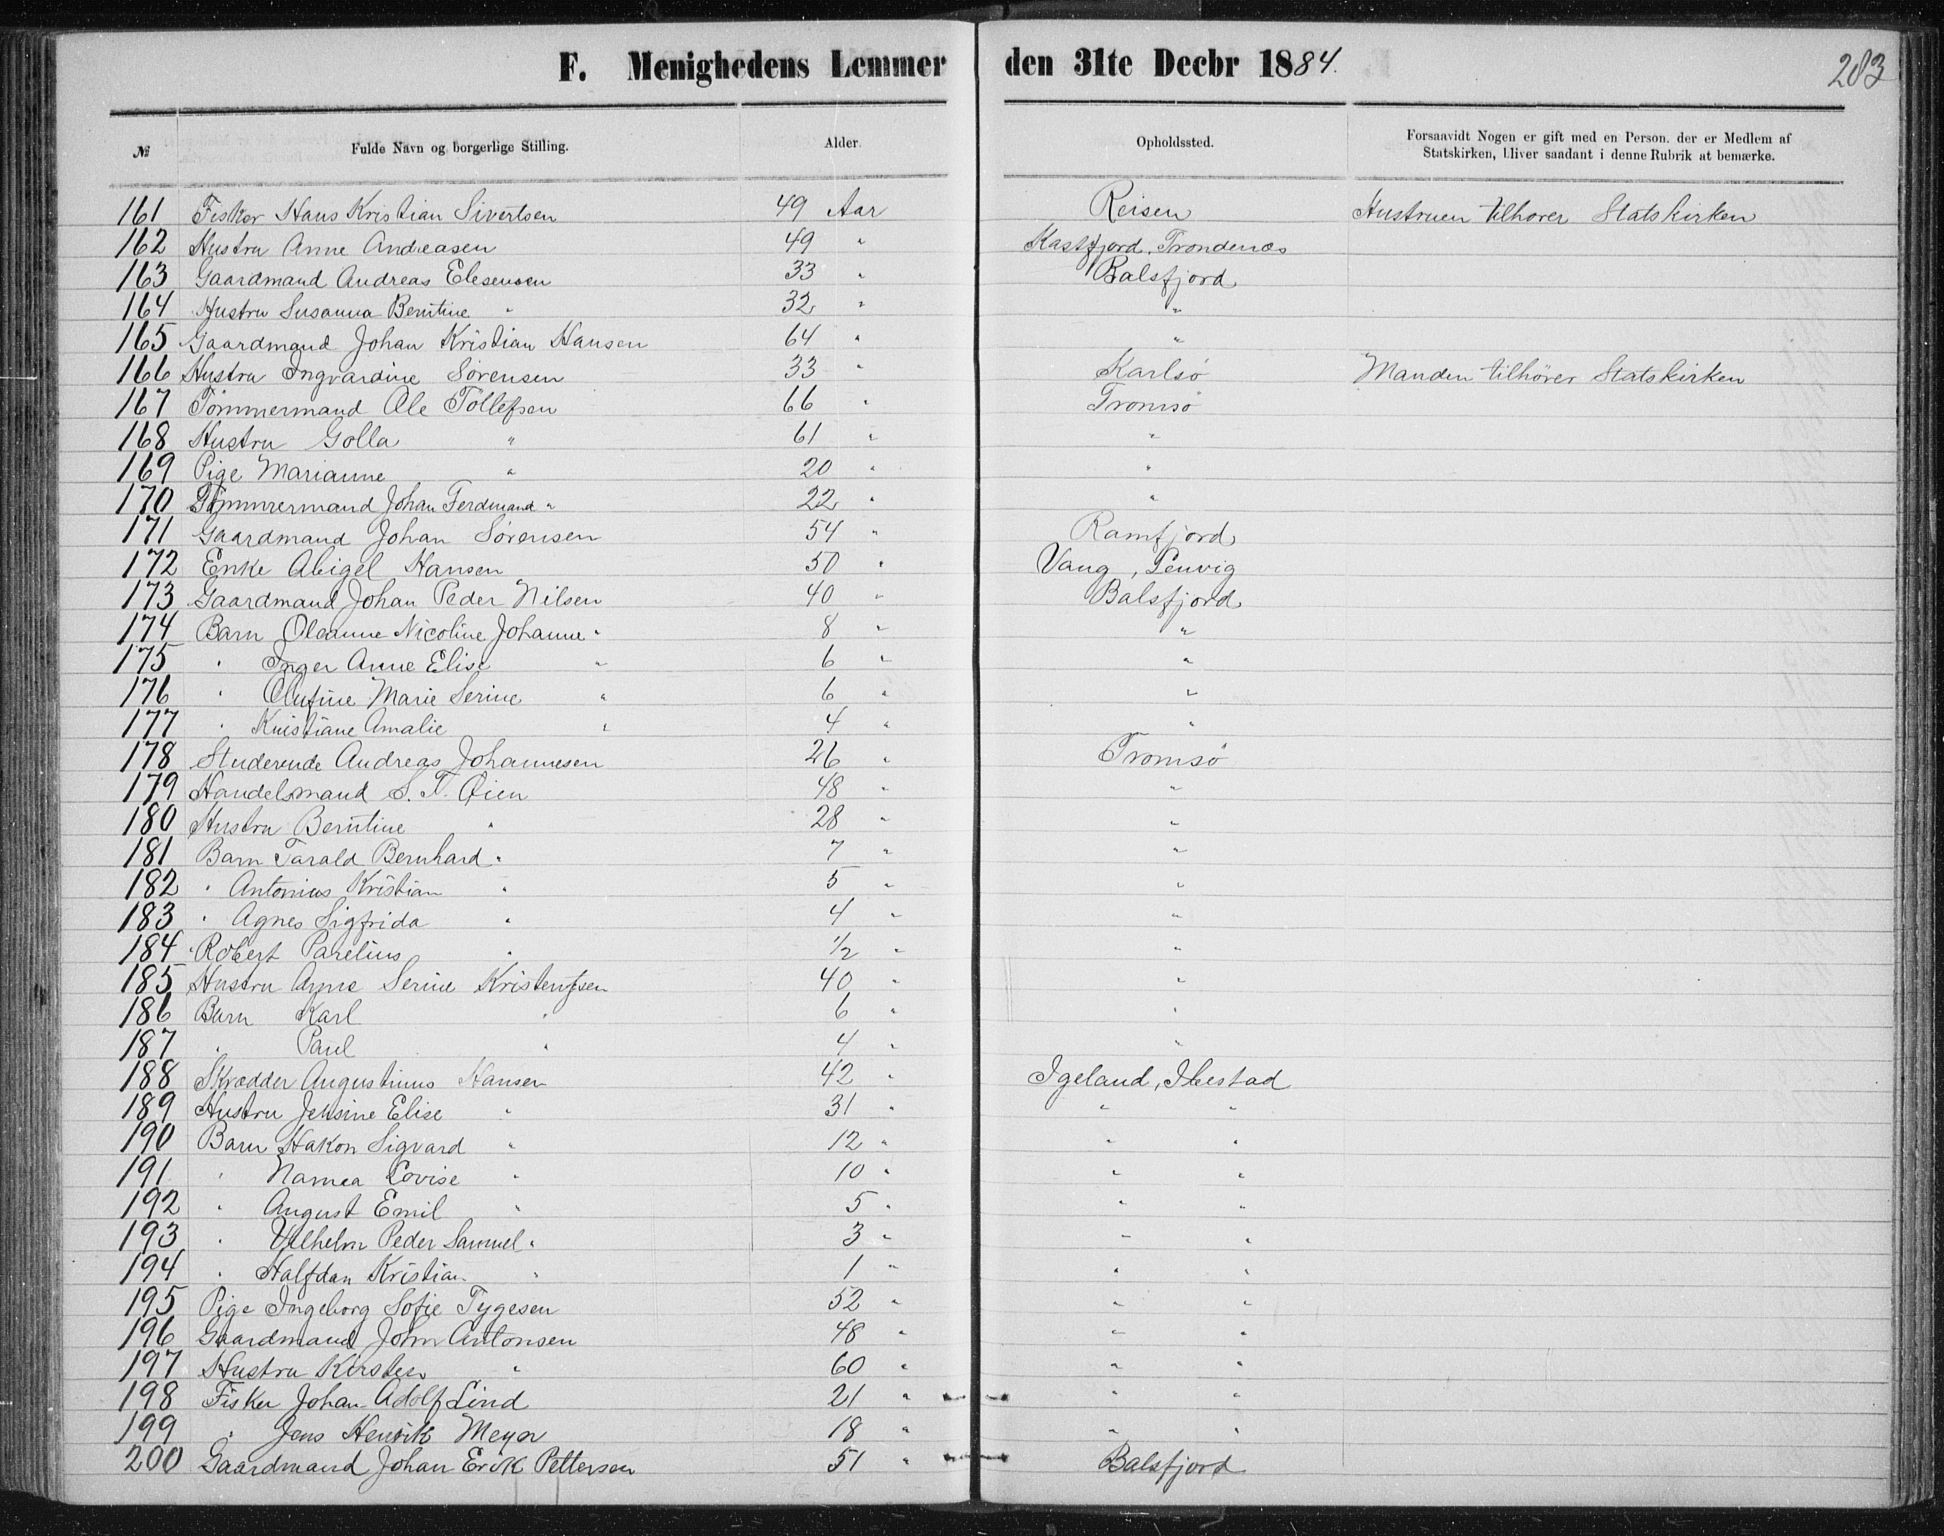 F. Menighedens Lemmer den 31te Decbr 1884. 283
№ Fulde Navn og borgerlige Stilling. Alder. Opholdssted. Forsaavidt Nogen er gift med en Person, der er Medlem af Statskirken, bliver saadant i denne Rubrik at bemærke.
161 Fisker Hans Kristian Sivertsen 49 Aar Reisen Hustruen tilhører Statskirken
162 Hustru Anne Andreasen 49 " Kastfjord, Trondenæs
163 Gaardmand Andreas Elesensen 33 " Balsfjord
164 Hustru Susanna Berntine " 32 " "
165 Gaardmand Johan Kristian Hansen 64 " "
166 Hustru Ingvardine Sørensen 33 " Karlsø Manden tilhører Statskirken
167 Tømmermand Ole Tollefsen 66 " Tromsø
168 Hustru Golla " 61 " "
169 Pige Marianne " 20 " "
170 Tømmermand Johan Ferdinand " 22 " "
171 Gaardmand Johan Sørensen 54 " Ramfjord
172 Enke Abigel Hansen 50 " Vang, Lenvig
173 Gaardmand Johan Peder Nilsen 40 " Balsfjord
174 Barn Oleanne Nicoline Johanne " 8 " "
175 " Inger Anne Elise " 6 " "
176 " Olufine Marie Serine " 6 " "
177 " Kristiane Amalie " 4 " "
178 Studerende Andreas Johannesen 26 " Tromsø
179 Handelsmand S. T. Øien 48 " "
180 Hustru Berntine " 28 " "
181 Barn Tarald Bernhard " 7 " "
182 " Antonius Kristian " 5 " "
183 " Agnes Sigfrida " 4 " "
184 " Robert Parelius " 1/2 " "
185 Hustru Anne Serine Kristentsen 40 " "
186 Barn Karl " 6 " "
187 " Paul " 4 " "
188 Skrædder Augustinus Hansen 42 " Igeland, Ibestad
189 Hustru Jensine Elise " 31 " " "
190 Barn Hakon Sigvard " 12 " " "
191 " Namea Lovise " 10 " " "
192 " August Emil " 5 " " "
193 " Vilhelm Peder Samuel " 3 " " "
194 " Halfdan Kristian " 1 " " "
195 Pige Ingeborg Sofie Tygesen 52 " " "
196 Gaardmand John Antonsen 48 " " "
197 Hustru Kirsten " 60 " " "
198 Fisker Johan Adolf Lind 21 " " "
199 " Jens Henrik Meyer 18 " " "
200 Gaardmand Johan Erik Pettersen 51 " Balsfjord